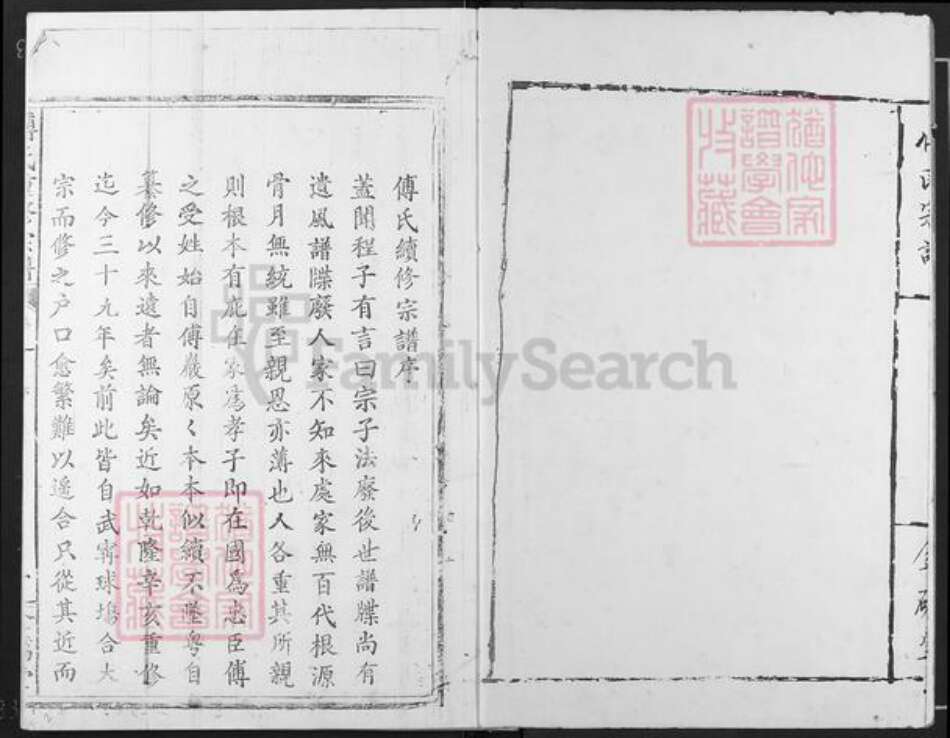 傅氏續修宗譜序
蓋聞程子有言曰宗子法廢後世譜牒尚有
遺風譜牒廢人家不知來處家無百代根源
骨月無統雖至親恩亦薄也人各重其所親
則根本有庇在家爲孝子即在國爲忠臣傅
之受姓始自傅巖原〻本本似續不墜粤自
纂修以來遠者無論矣近如乾隆辛亥重修
迄今三十九年矣前此皆自武甯球塲合大
宗而修之户口愈繁難以遥合只從其近而
FamilySearch